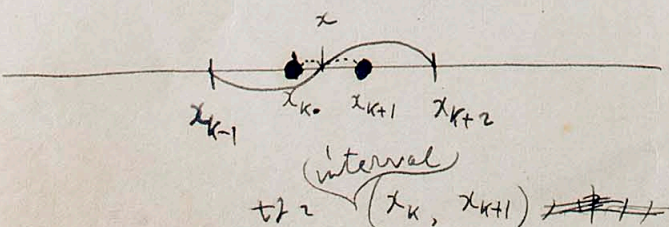 x
x_{k-1} x_k x_{k+1} x_{k+2}
interval
(x_k, x_{k+1})